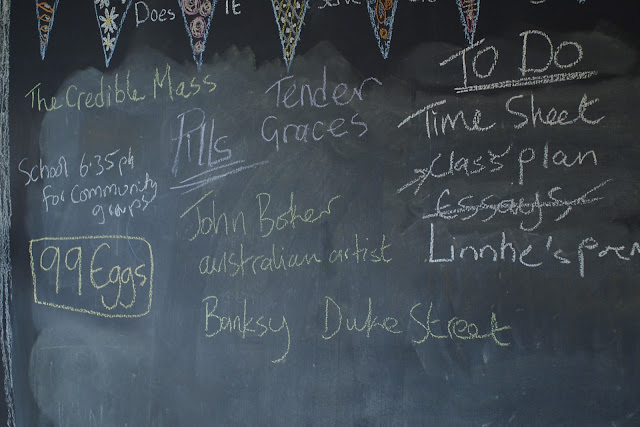 Does IE Serve
The Credible Mass
Tender
Graces
Pills
School 6.35ph
for Community
groups
99 Eggs
John Boker
australian artist
Banksy Duke Street
To Do
Time Sheet
Class plan
Essays
Linnhe's poem